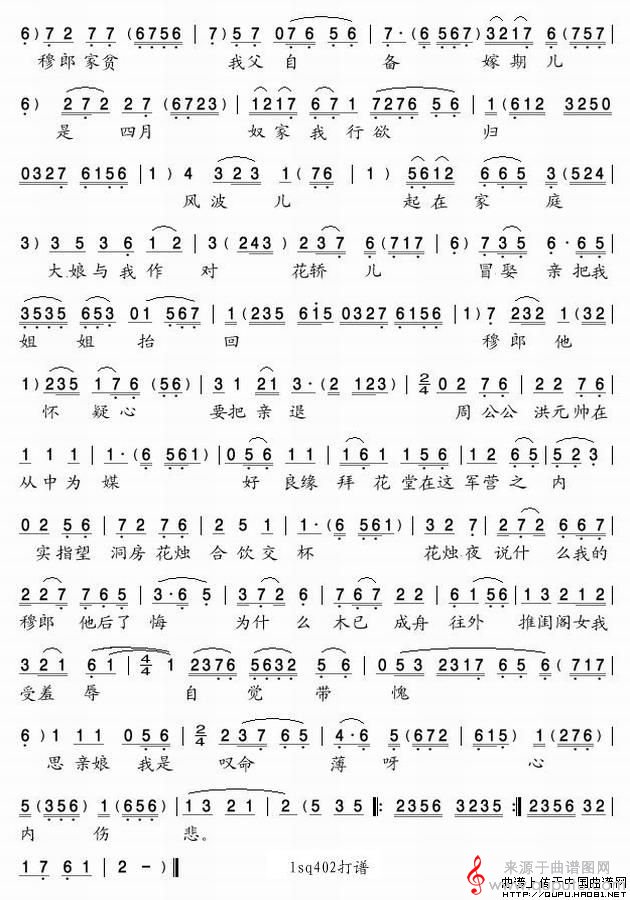 6) 7 2 7 7 (6756 | 7) 5 7 076 5 6 | 7· (6 567) 3217 6 (757
穆郎家贫 我父自 备 嫁期儿
6) 272 27 (6723) | 1217 671 7276 56 | 1(612 3250
是 四月 奴家我行欲 归
0327 6156 | 1) 4 323 1(76 | 1) 5612 665 3(524
风波儿 起在家 庭
3) 3 5 3 6 1 2 | 3(243) 237 6(717 | 6) 735 6·65
大娘与我作 对 花轿儿 冒娶亲把我
3535 653 01 567 | 1(235 615 0327 6156 | 1)7 232 1(32
姐 姐 抬 回 穆郎他
1)235 176 (56) | 31 21 3·(2 123) | 2/4 02 76 | 22 76 |
怀疑心 要把亲退 周公公 洪元帅在
1 1 1 | 1·(6 561) | 056 11 | 161 156 | 12 65 | 523 |
从中为 媒 好 良缘 拜花堂在这军营之 内
02 56 | 72 76 | 25 1 | 1·(6 561) | 32 7 | 272 667 |
实指望 洞房花烛 合饮交 杯 花烛夜 说什 么我的
227 765 | 3·65 | 367 1 | 767 22 | 6156 | 13212
穆郎 他后了 悔 为什 么 木已 成舟 往外 推闺阁女我
321 61 | 4/4 1 2376 5632 56 | 053 2317 656 (717 |
受羞 辱 自 觉 带 愧
6)1 11 056 | 2/4 237 65 | 4·6 5(672 | 615) 1(276) |
思亲娘 我是 叹命 薄呀 心
5(356) 1(656) | 13 21 | 2(5 35 ‖: 2356 3235 :‖ 2356 32 |
内 伤 悲。
17 61 | 2 -) ‖
1sq402打谱
来源于曲谱图网
曲谱上传于中国曲谱网